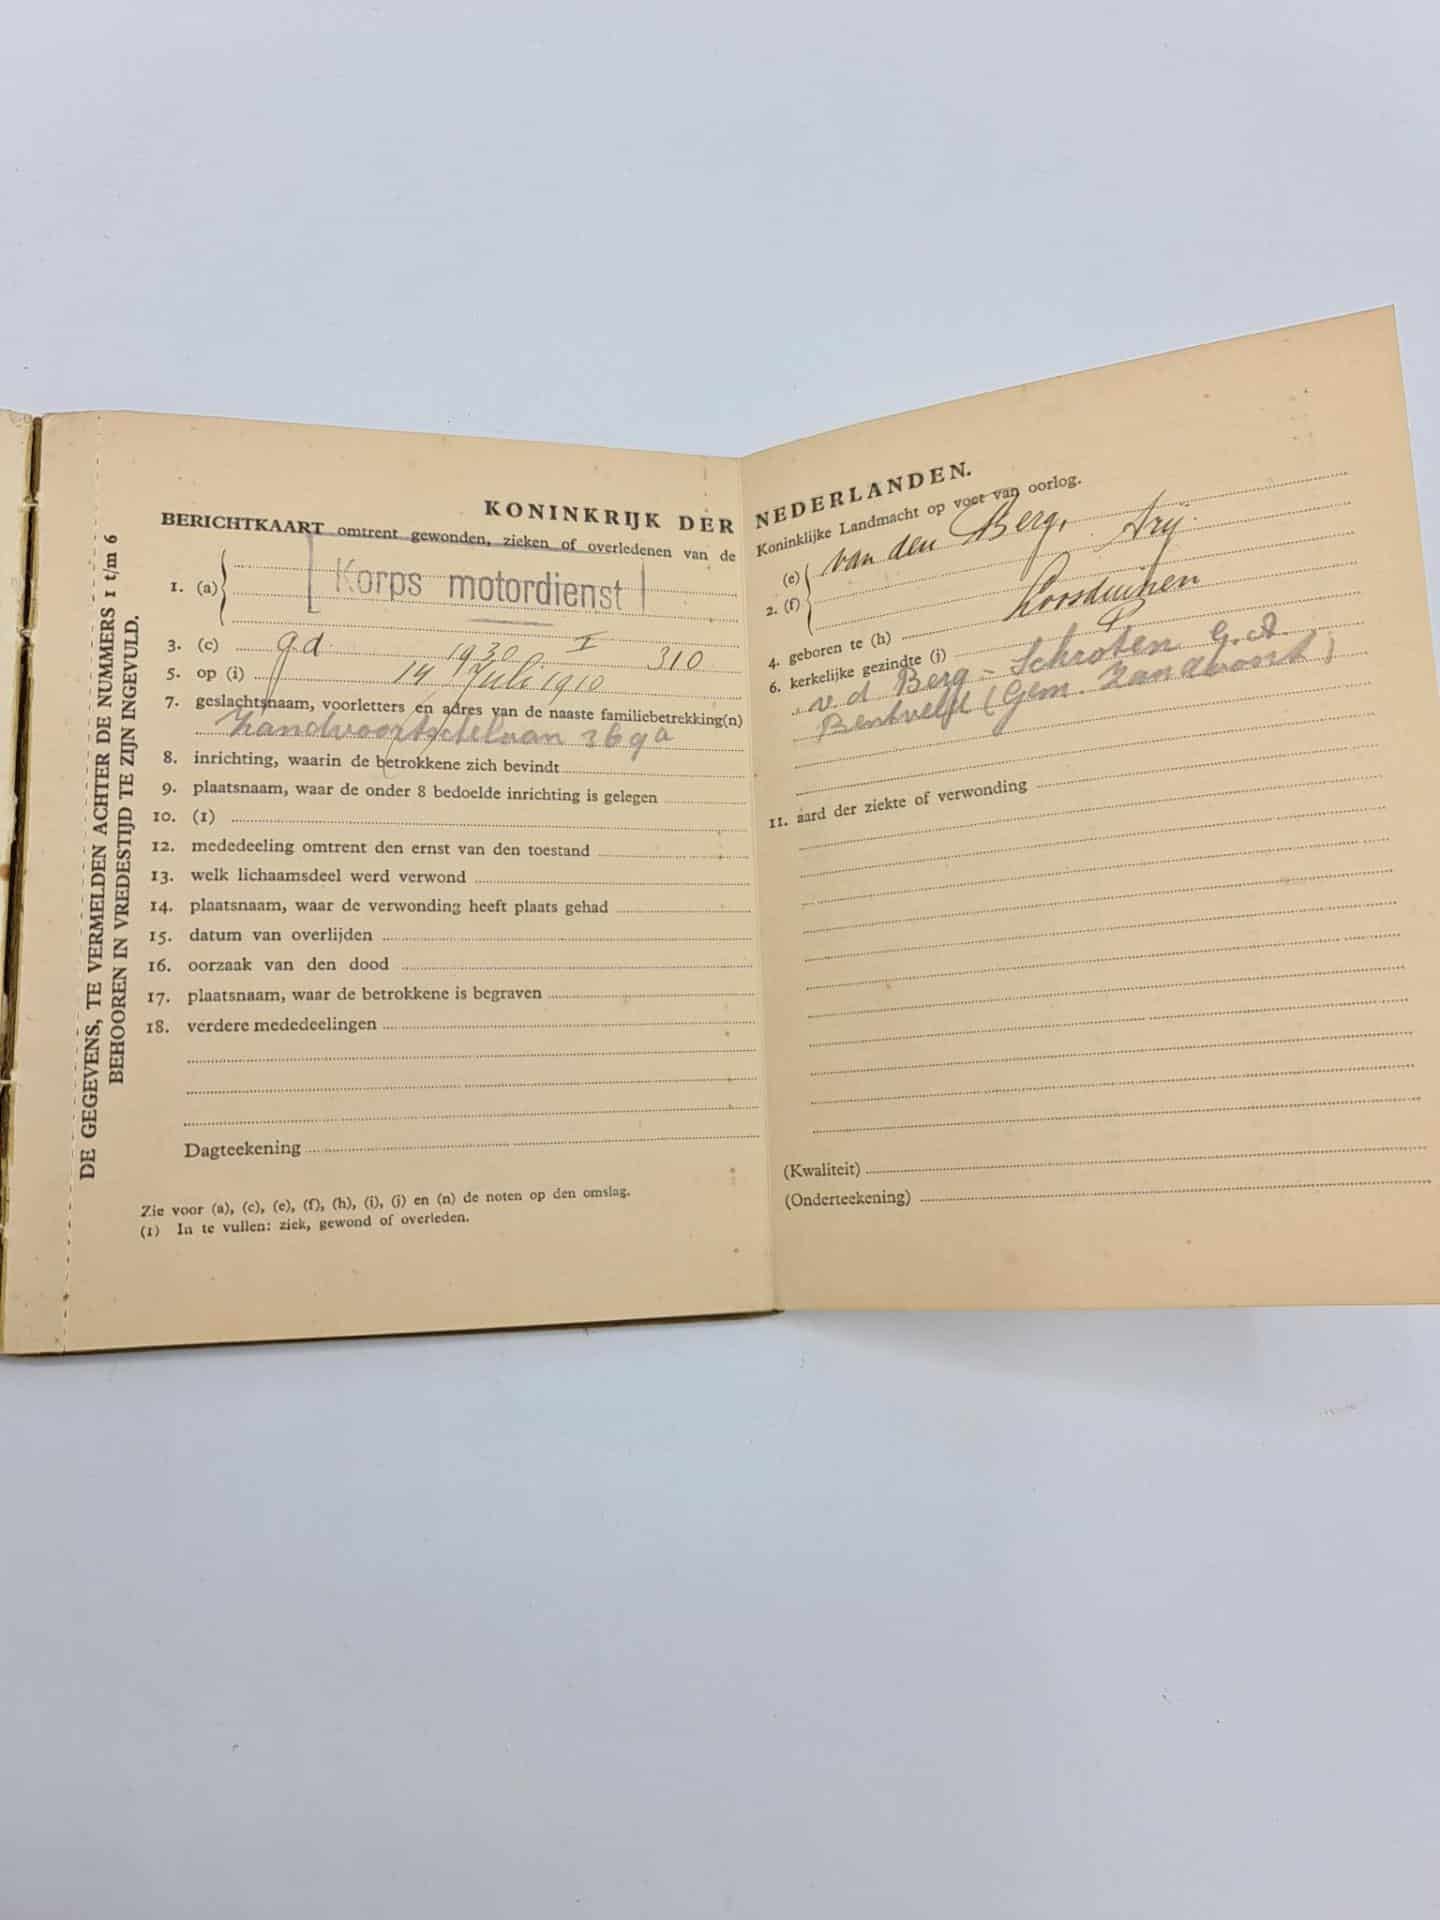 DE GEGEVENS, TE VERMELDEN ACHTER DE NUMMERS 1 t/m 6
BEHOOREN IN VREDESTIJD TE ZIJN INGEVULD.
KONINKRIJK DER
BERICHTKAART omtrent gewonden, zieken of overledenen van de
1. (a)
Korps motordienst
3. (c) g.d. 1930 I 310
5. op (i) 14 Juli 1910
7. geslachtsnaam, voorletters en adres van de naaste familiebetrekking(n)
Zandvoortschelaan 369a
8. inrichting, waarin de betrokkene zich bevindt
9. plaatsnaam, waar de onder 8 bedoelde inrichting is gelegen
10. (1)
12. mededeeling omtrent den ernst van den toestand
13. welk lichaamsdeel werd verwond
14. plaatsnaam, waar de verwonding heeft plaats gehad
15. datum van overlijden
16. oorzaak van den dood
17. plaatsnaam, waar de betrokkene is begraven
18. verdere mededeelingen
Dagteekening
Zie voor (a), (c), (e), (f), (h), (i), (j) en (n) de noten op den omslag.
(1) In te vullen: ziek, gewond of overleden.
NEDERLANDEN.
Koninklijke Landmacht op voet van oorlog.
(e) van den Berg, Arij.
2. (f)
4. geboren te (h) Loosduinen
6. kerkelijke gezindte (j)
v. d Berg - Schroten G.c.A.
Bentveld (Gem. Zandvoort)
11. aard der ziekte of verwonding
(Kwaliteit)
(Onderteekening)